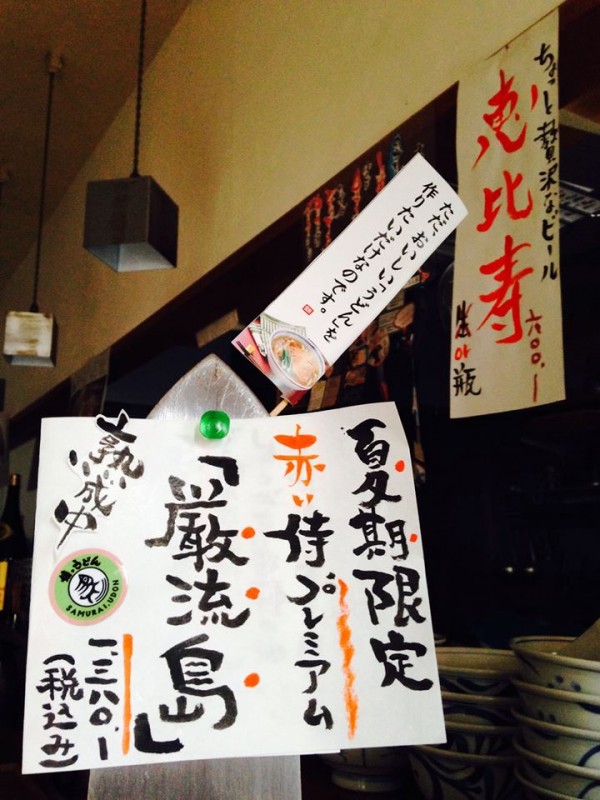 ちょっと贅沢なビール
恵比寿
六〇〇.ー
生or瓶
ただ、おいしい「うどん」を
作りたいだけなのです。
夏期限定
赤い侍プレミアム
「厳流島」
一、三八〇.ー
(税込み)
熟成中
侍.うどん
SAMURAI.UDON